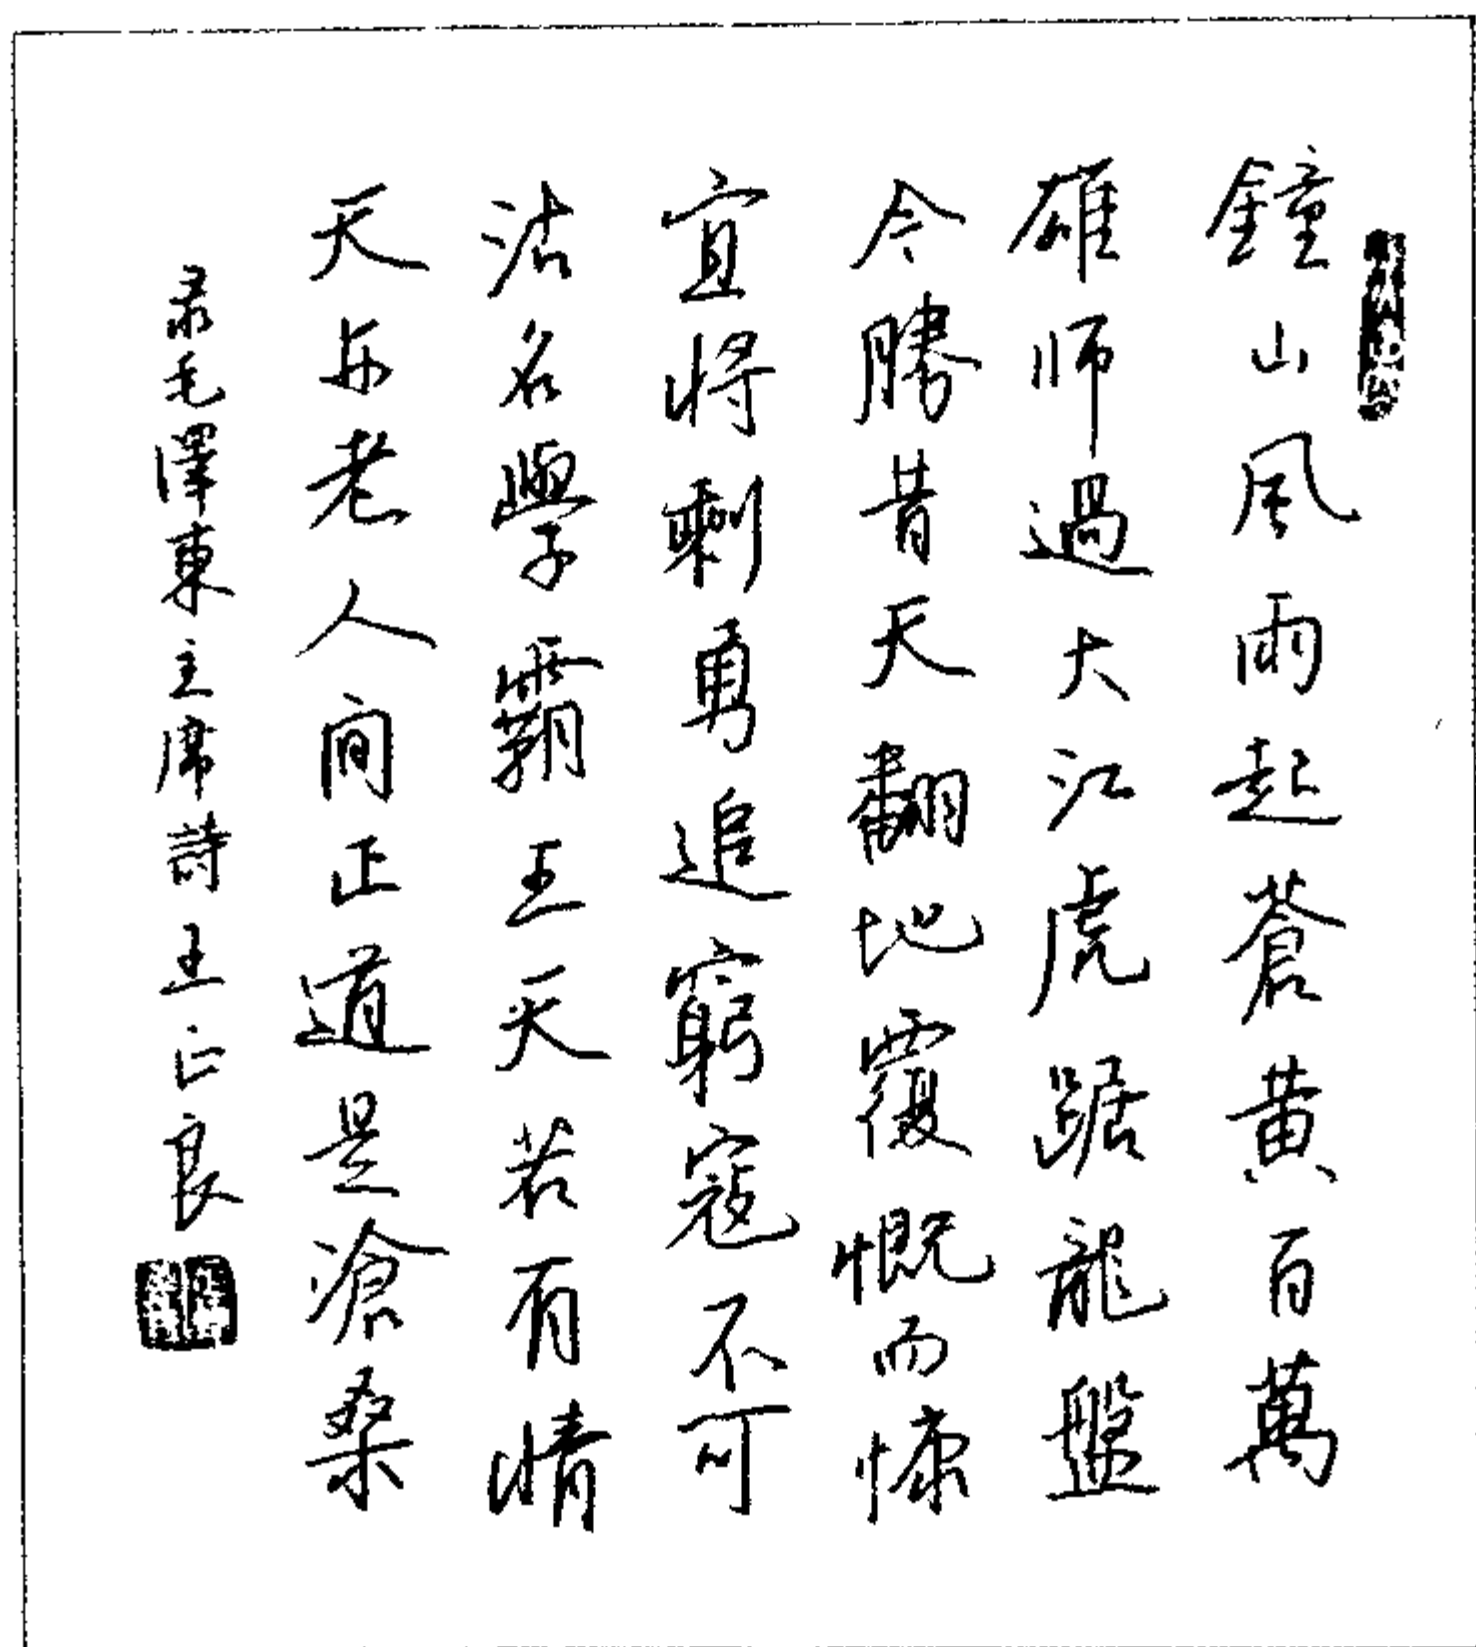 鐘山風雨起蒼黄百萬
雄师過大江虎踞龍盤
今勝昔天翻地覆慨而慷
宜将剩勇追窮寇不可
沽名學霸王天若有情
天亦老人间正道是滄桑
录毛澤東主席詩王正良